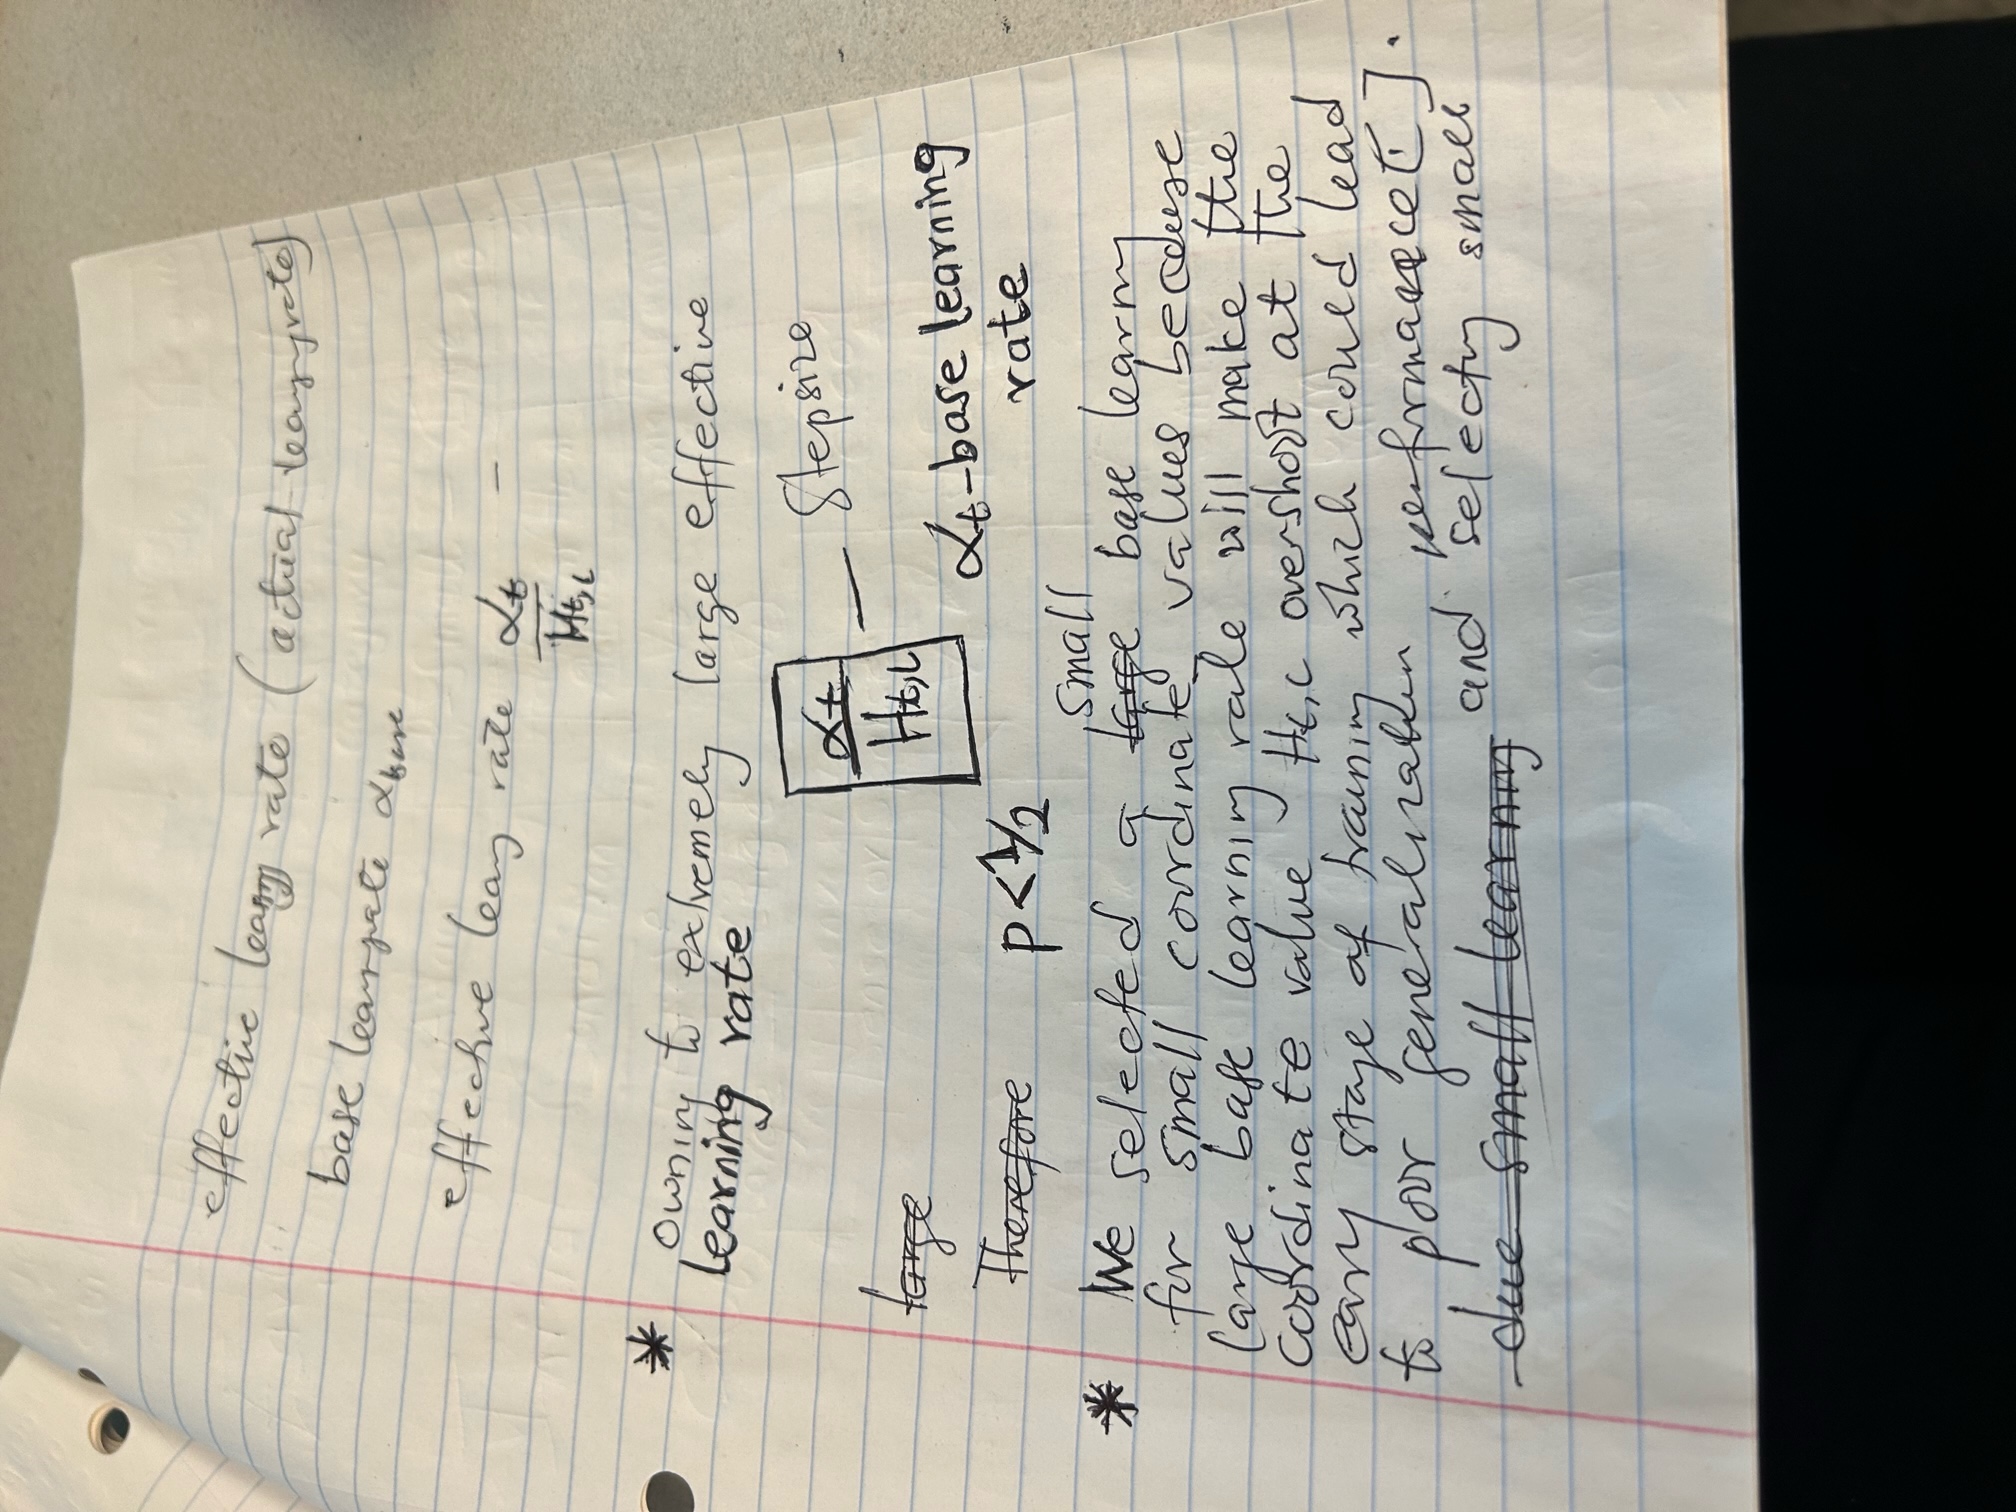 effective learning rate (actual learning rate)
base learning rate αbase
effective learning rate αt –
Ht,i
* owning to extremely large effective
learning rate
αt — Stepsize
Ht,i
large
αt-base learning
rate
Therefore p<1/2
small
* We selected a large base learnng
for small coordinate values because
large base learning rate will make the
coordinate value Ht,i overshoot at the
early stage of training which could lead
to poor generalization performance [ ].
due small learning and selecting small